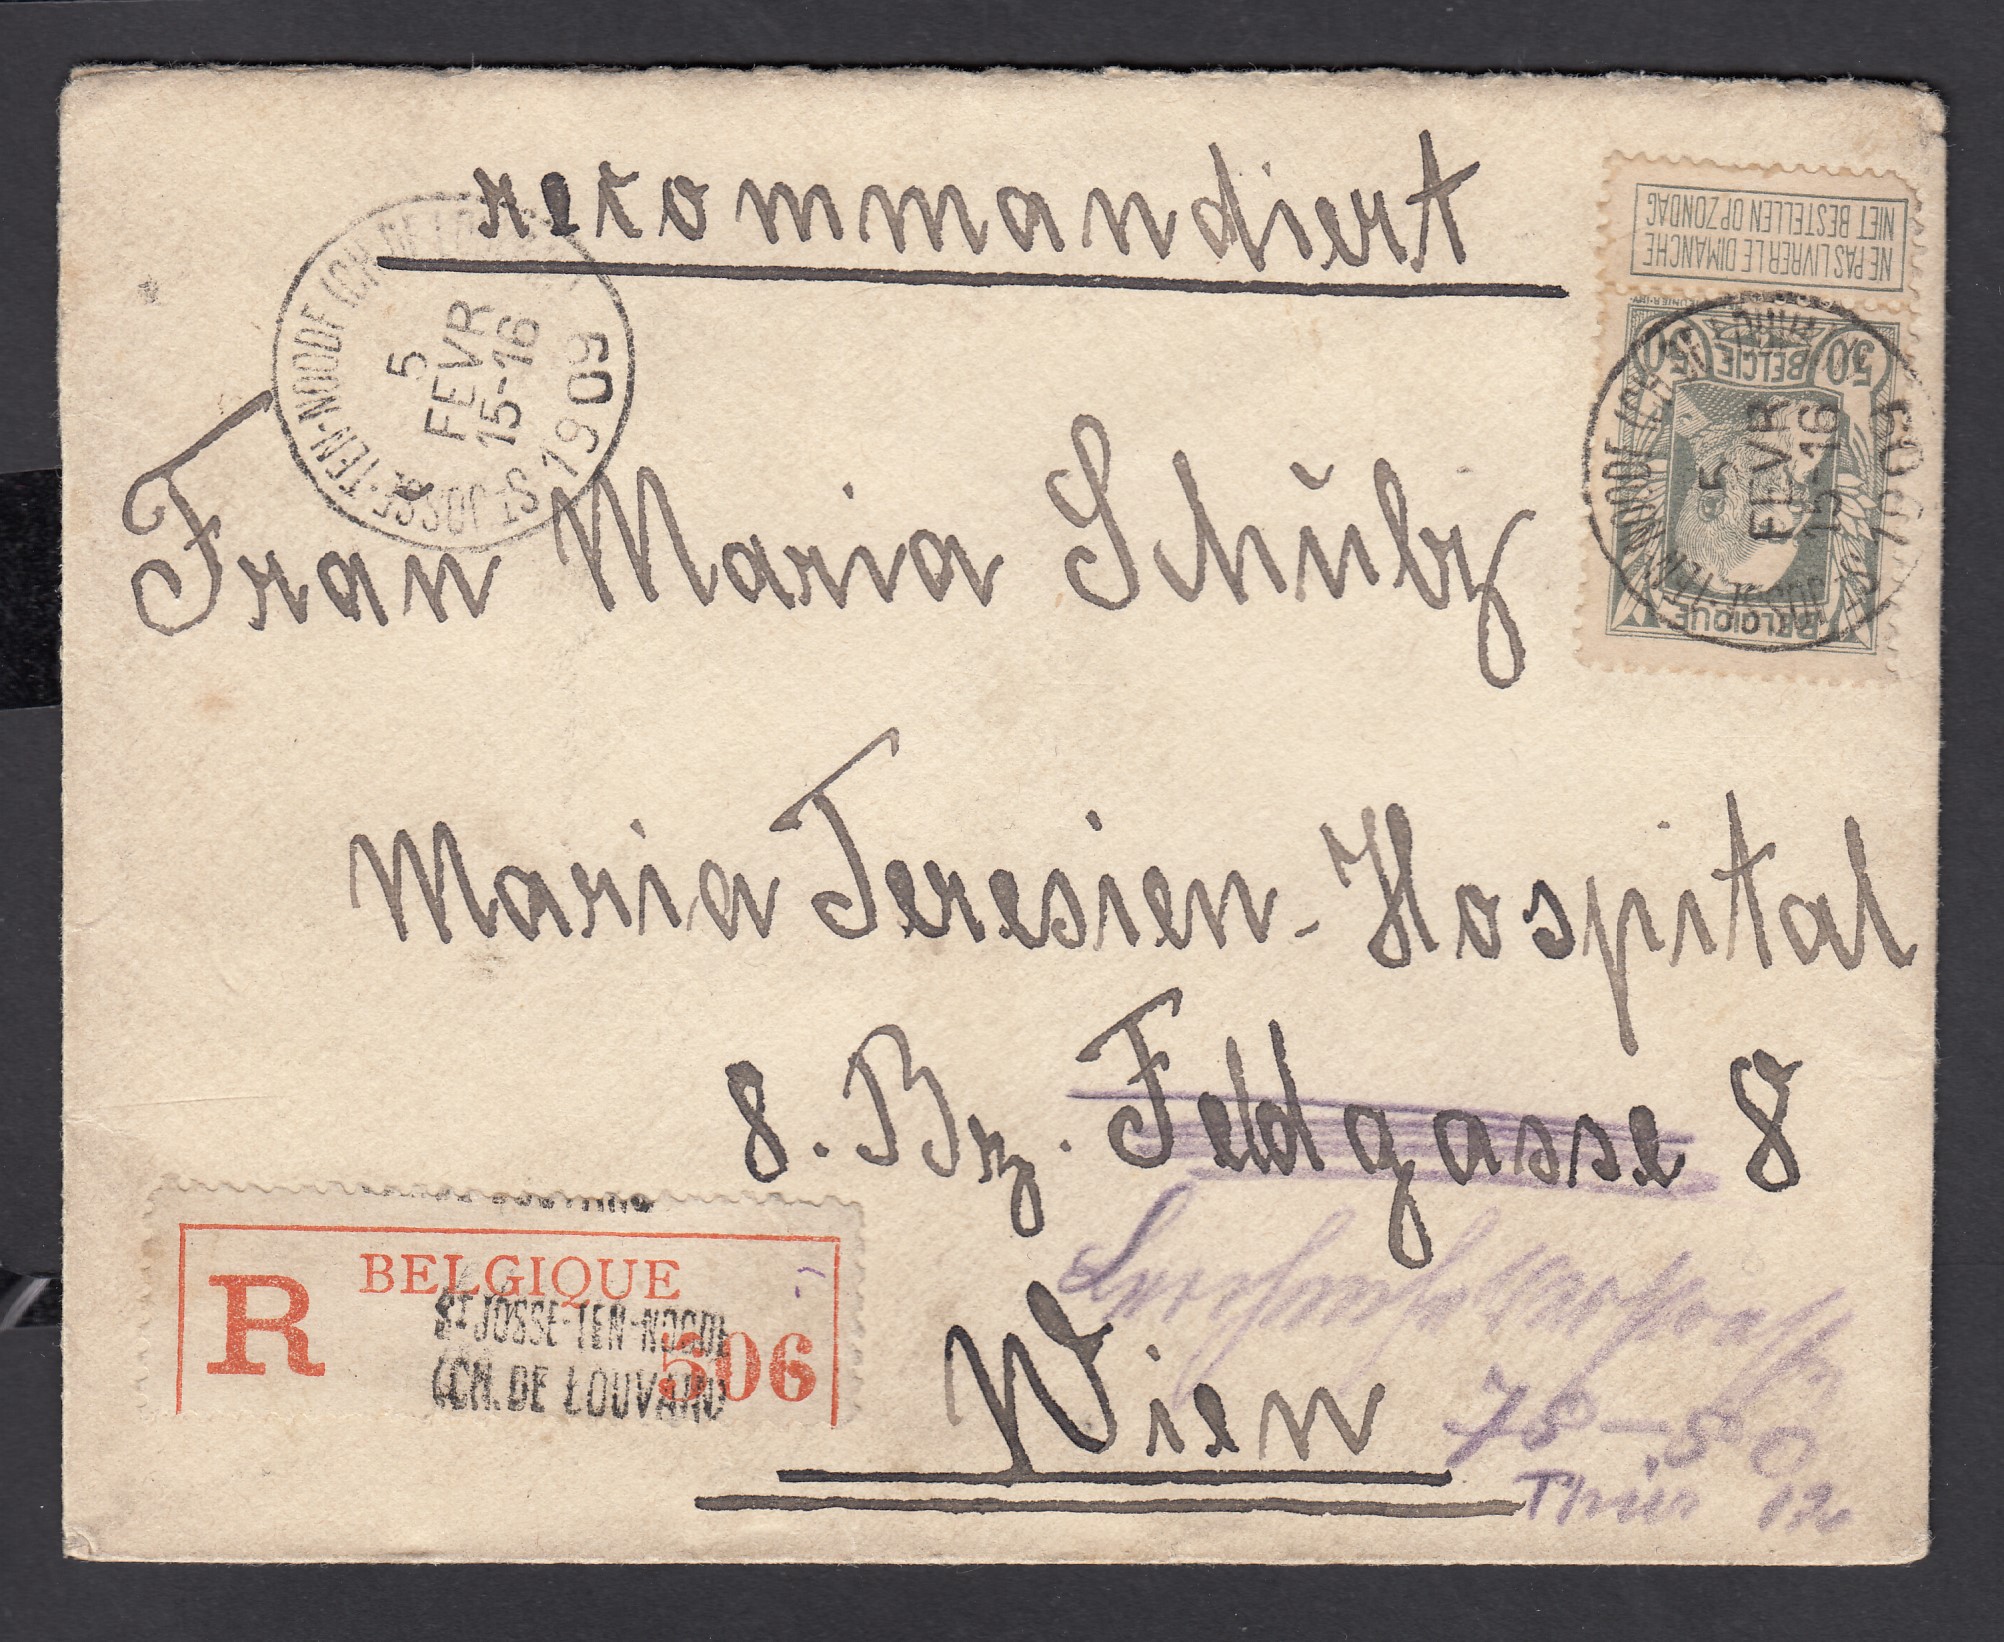 rekommandiert
ST-JOSSE-TEN-NOODE (CH. DE LOUVAIN)
5
FEVR
15-16
1909
NE PAS LIVRER LE DIMANCHE
NIET BESTELLEN OP ZONDAG
50 BELGIË 50
BELGIQUE
ST-JOSSE-TEN-NOODE (CH.
5
FEVR
15-16
1909
Frau Maria Schülz
Maria Teresien-Hospital
8. Bz. Feldgasse 8
Wien
78-80
Thür 12
BELGIQUE
R
506
ST JOSSE-TEN-NOODE
(CH. DE LOUVAIN)